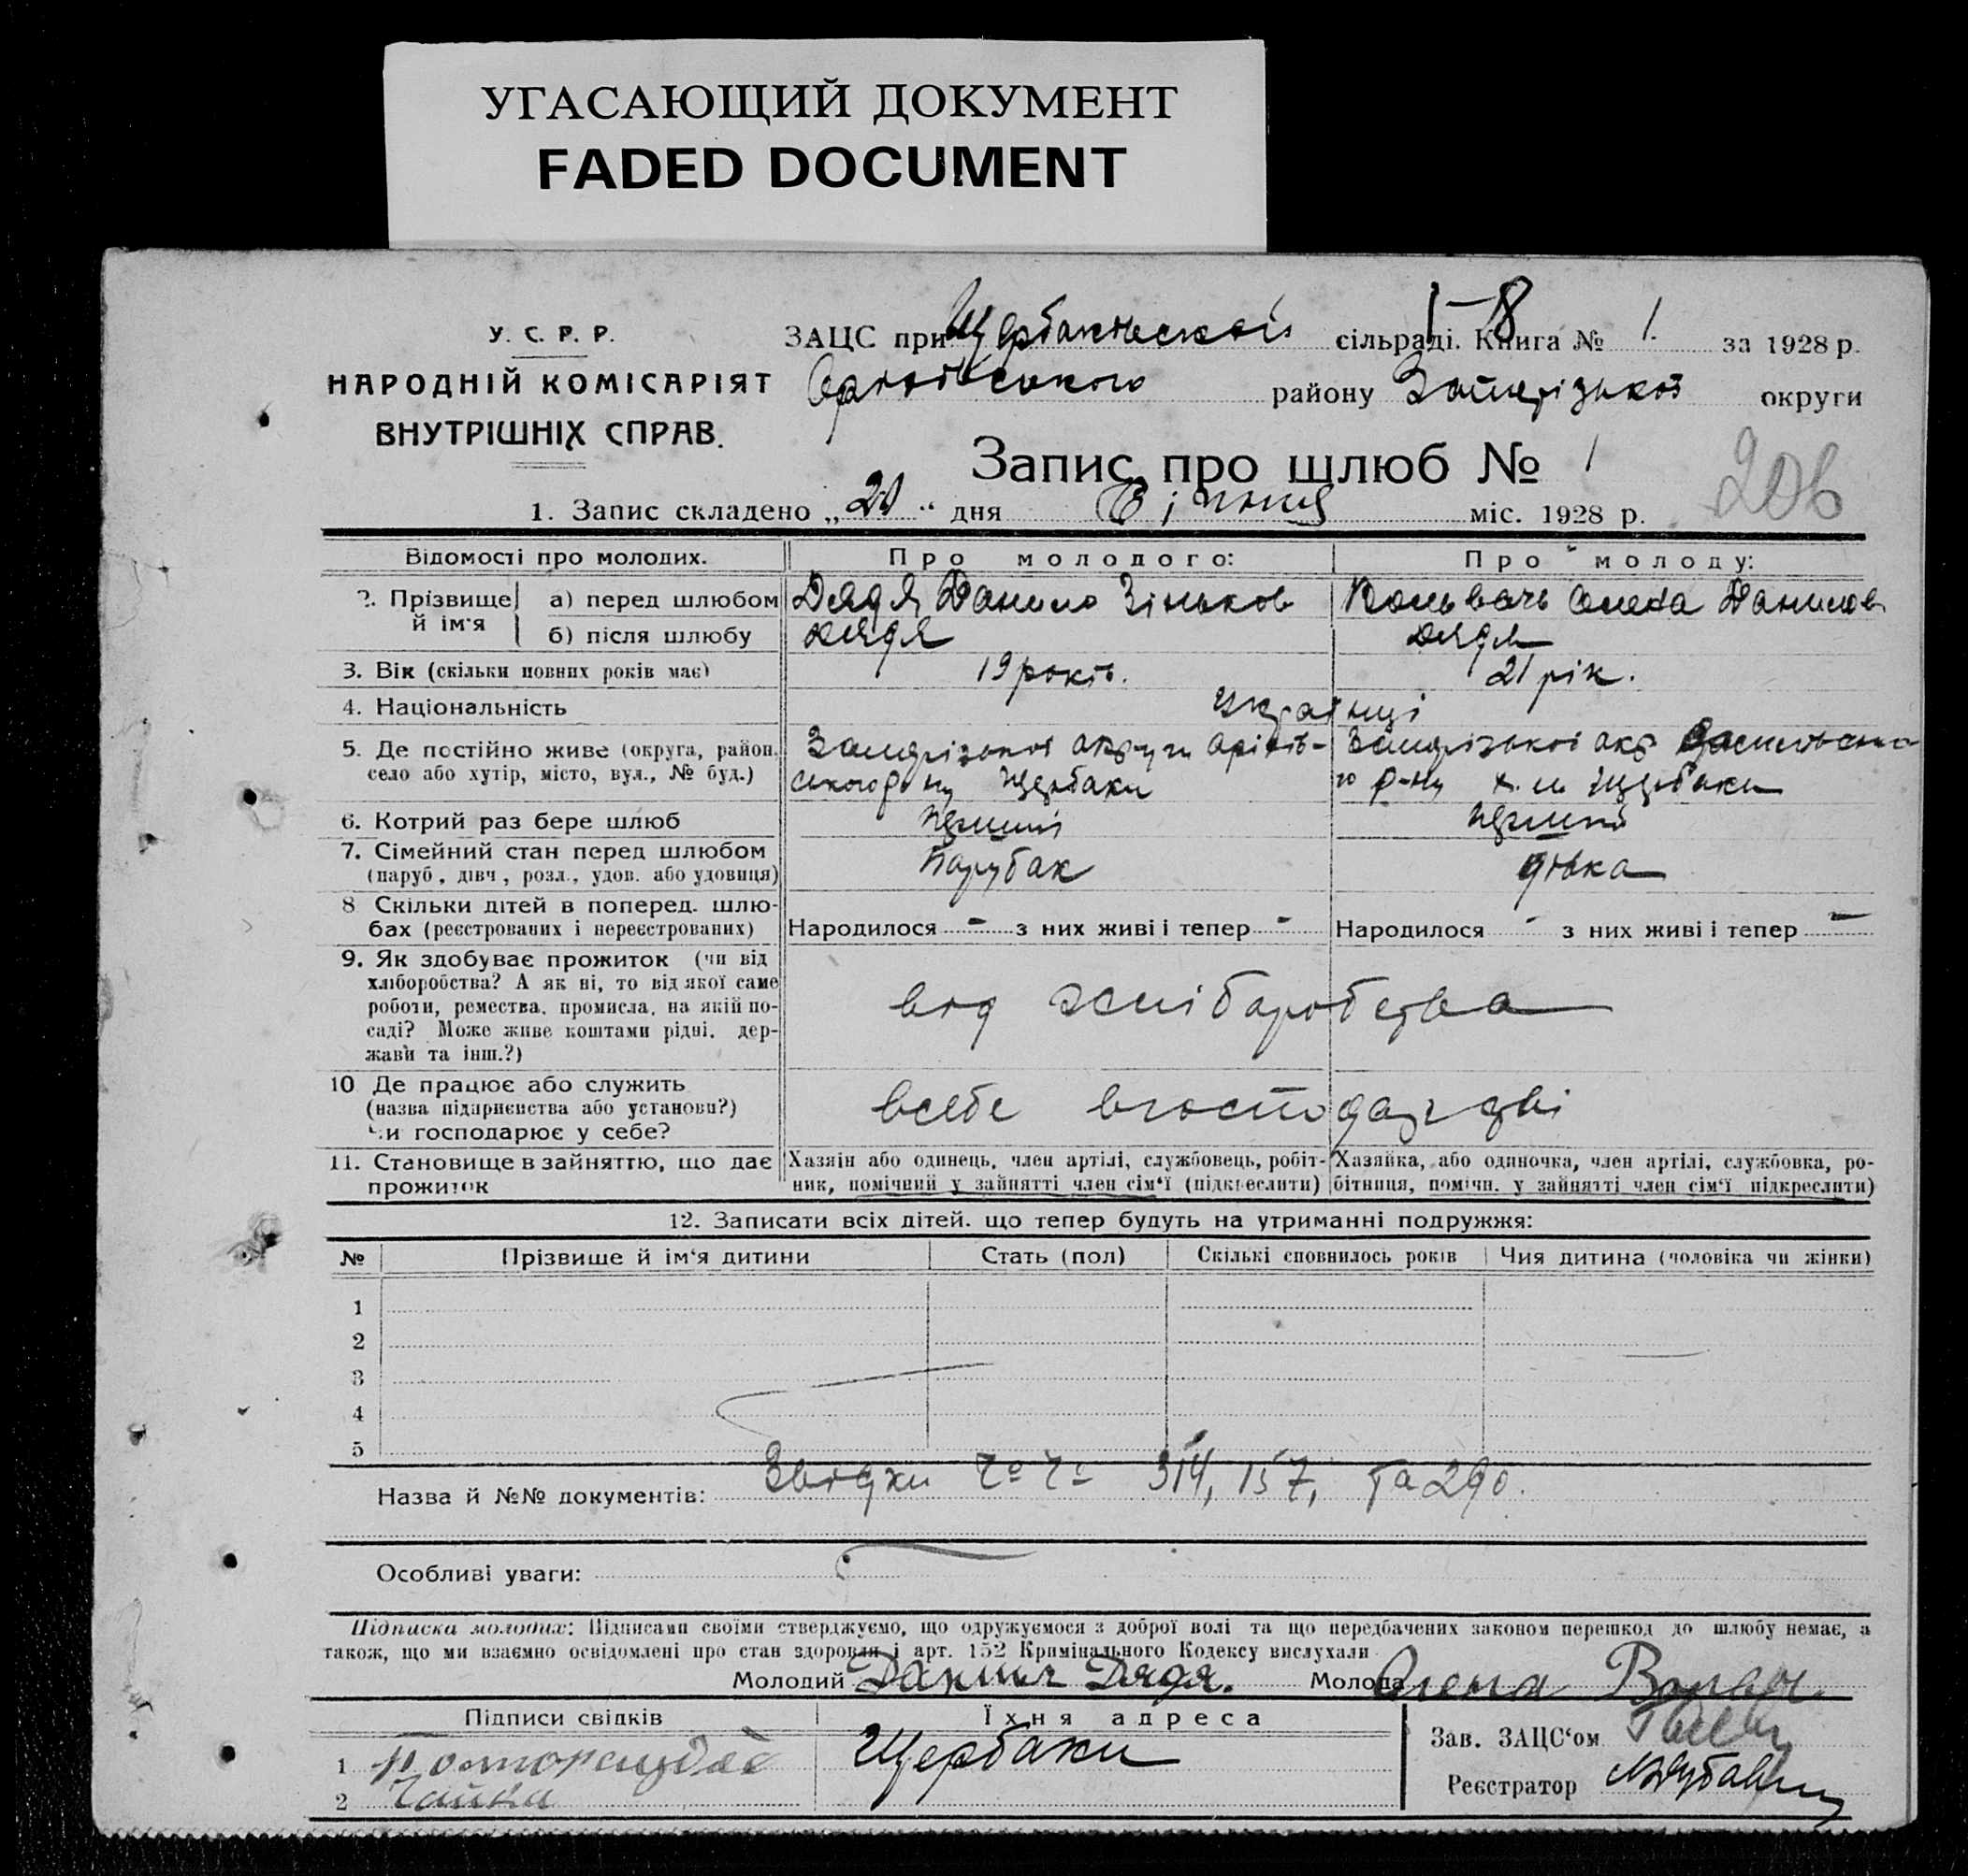 УГАСАЮЩИЙ ДОКУМЕНТ
FADED DOCUMENT
1-8
У. С. Р. Р.
НАРОДНІЙ КОМІСАРІЯТ
ВНУТРІШНІХ СПРАВ.
ЗАЦС при Щербаківській сільраді. Книга № 1. за 1928 р.
Оріхівського району Запорізької округи
Запис про шлюб № 1
1. Запис складено „20“ дня Січня міс. 1928 р.
206
Відомості про молодих. Про молодого: Про молоду:
2. Прізвище й ім'я а) перед шлюбом Дядя Данило Зіньков Вольвач Олена Данилов.
б) після шлюбу Дядя Дядя
3. Вік (скільки повних років має) 19 років. 21 рік.
4. Національність Українці
5. Де постійно живе (округа, район, Запорізької округи Оріхів- Запорізької окр
село або хутір, місто, вул., № буд.) ського р-ну Щербаки го р-ну Щербаки
6. Котрий раз бере шлюб Перший Перший
7. Сімейний стан перед шлюбом Парубак дівка
(паруб, дівч, розл., удов. або удовиця)
8 Скільки дітей в поперед. шлю-
бах (реєстрованих і нереєстрованих) Народилося - з них живі і тепер - Народилося - з них живі і тепер -
9. Як здобуває прожиток (чи від
хліборобства? А як ні, то від якої саме
роботи, ремества, промисла, на якій по- від хліборобства
саді? Може живе коштами рідні, дер-
жави та інш.?)
10 Де працює або служить
(назва підприємства або установи?) в себе в господарстві
Чи господарює у себе?
11. Становище в зайняттю, що дає Хазяїн або одинець, член артілі, службовець, робіт- Хазяйка, або одиночка, член артілі, службовка, ро-
прожиток ник, помічний у зайнятті член сім'ї (підкреслити) бітниця, помічн. у зайнятті член сім'ї підкреслити)
12. Записати всіх дітей, що тепер будуть на утриманні подружжя:
№ Прізвище й ім'я дитини Стать (пол) Скількі сповнилось років Чия дитина (чоловіка чи жінки)
1
2
3
4
5
Назва й №№ документів: Звідки 314, 157, та 290.
Особливі уваги:
Підписка молодих: Підписами своїми стверджуємо, що одружуємося з доброї волі та що передбачених законом перешкод до шлюбу немає, а
також, що ми взаємно освідомлені про стан здоровля і арт. 152 Кримінального Кодексу вислухали
Молодий Данил Дядя. Молода Олена Вольвач.
Підписи свідків Їхня адреса
Зав. ЗАЦС'ом
1 Щербаки
Реєстратор
2 Чайка